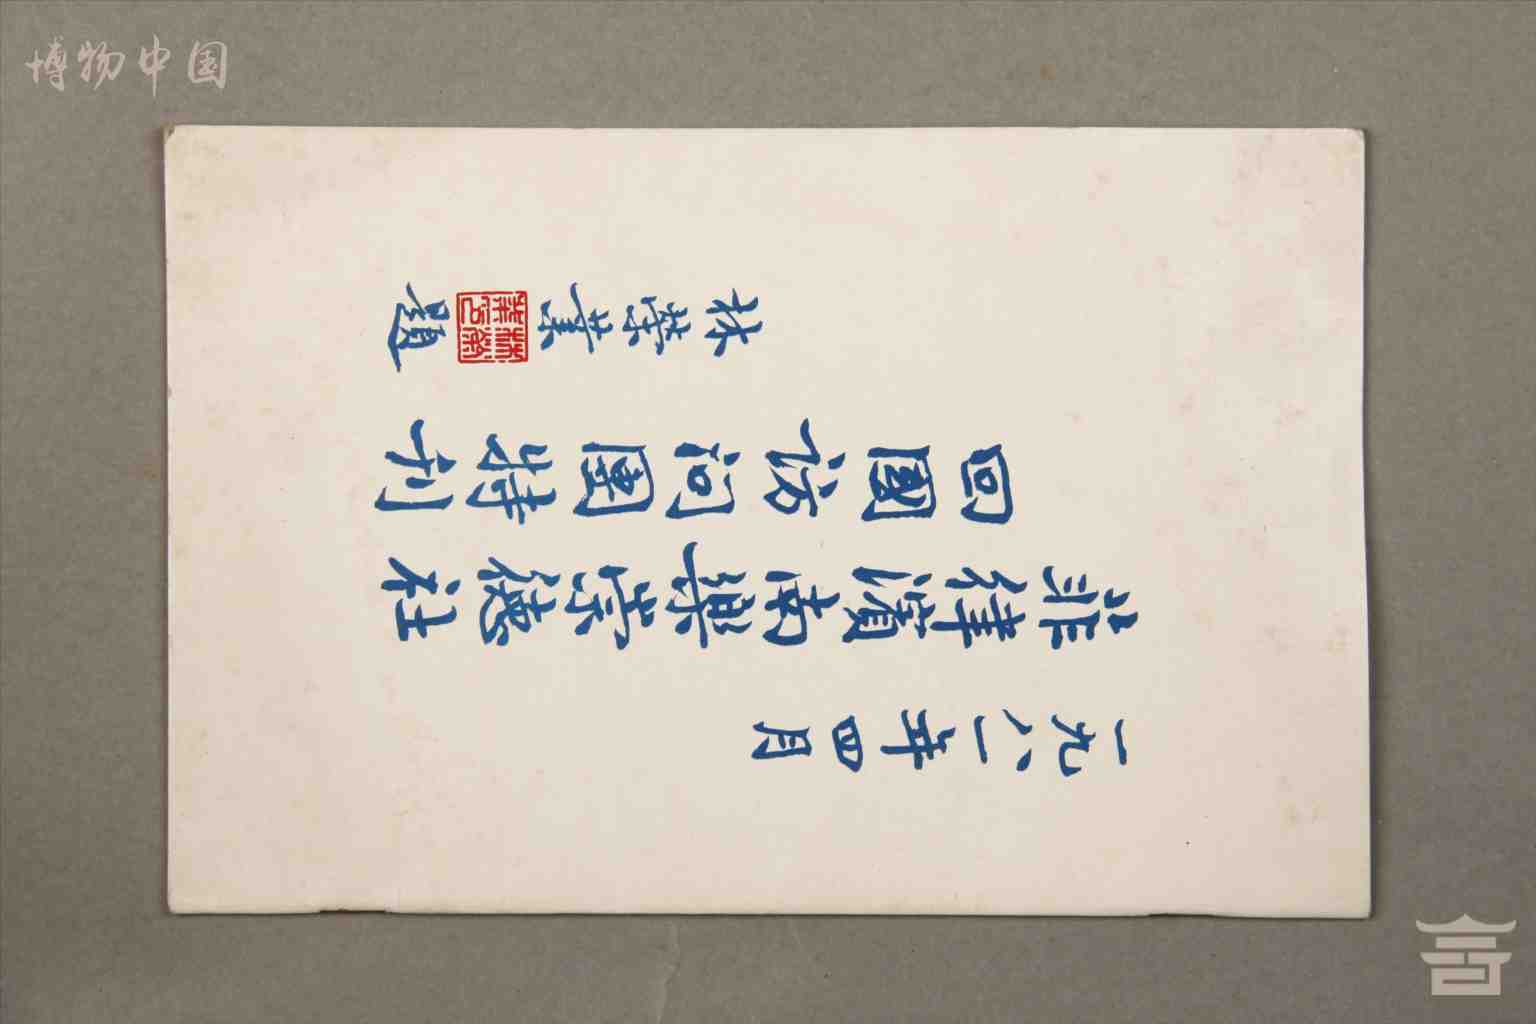 博物中国
一九八一年四月
菲律濱南樂崇德社
回國访问團特刊
林榮業題